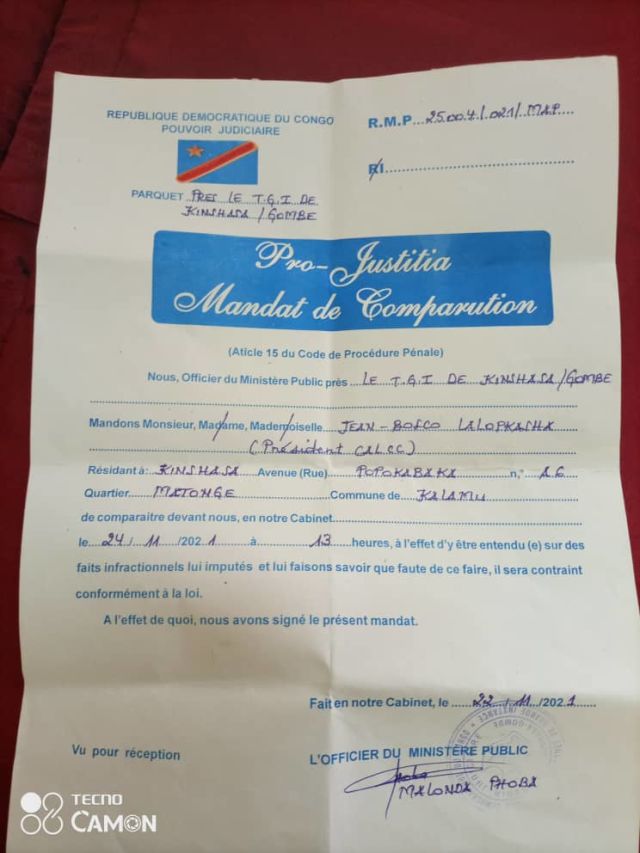 REPUBLIQUE DEMOCRATIQUE DU CONGO
POUVOIR JUDICIAIRE
R.M.P...25.004/021/MAP
RI
PARQUET PRES LE T.G.I DE
KINSHASA/GOMBE
Pro-Justitia
Mandat de Comparution
(Aticle 15 du Code de Procédure Pénale)
Nous, Officier du Ministère Public près LE T.G.I DE KINSHASA/GOMBE
Mandons Monsieur, Madame, Mademoiselle JEAN-BOSCO LALOPKASHA
(Président CALCC)
Résidant à: KINSHASA Avenue (Rue) POPOKABAKA n,° 16
Quartier MATONGE Commune de KALAMU
de comparaitre devant nous, en notre Cabinet
le 24/11/2021 à 13 heures, à l'effet d'y être entendu (e) sur des
faits infractionnels lui imputés et lui faisons savoir que faute de ce faire, il sera contraint
conformément à la loi.
A l'effet de quoi, nous avons signé le présent mandat.
Fait en notre Cabinet, le 22/11/2021
Vu pour réception
L'OFFICIER DU MINISTÈRE PUBLIC
MALONDA PHOBA
TECNO
CAMON